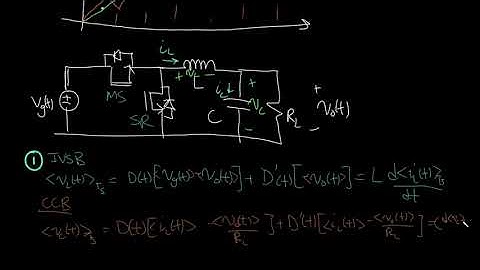 iL
+ vL -
Vg(t) + - MS SR ic + vc - C RL + v0(t) -
① IVSB
<vL(t)>Ts = D(t)[<vg(t)> - <v0(t)>] + D'(t)[-<v0(t)>] = L d<iL(t)>Ts / dt
CCB
<ic(t)>Ts = D(t)[<iL(t)> - <v0(t)>/RL] + D'(t)[<iL(t)> - <v0(t)>/RL] = C d<vc>